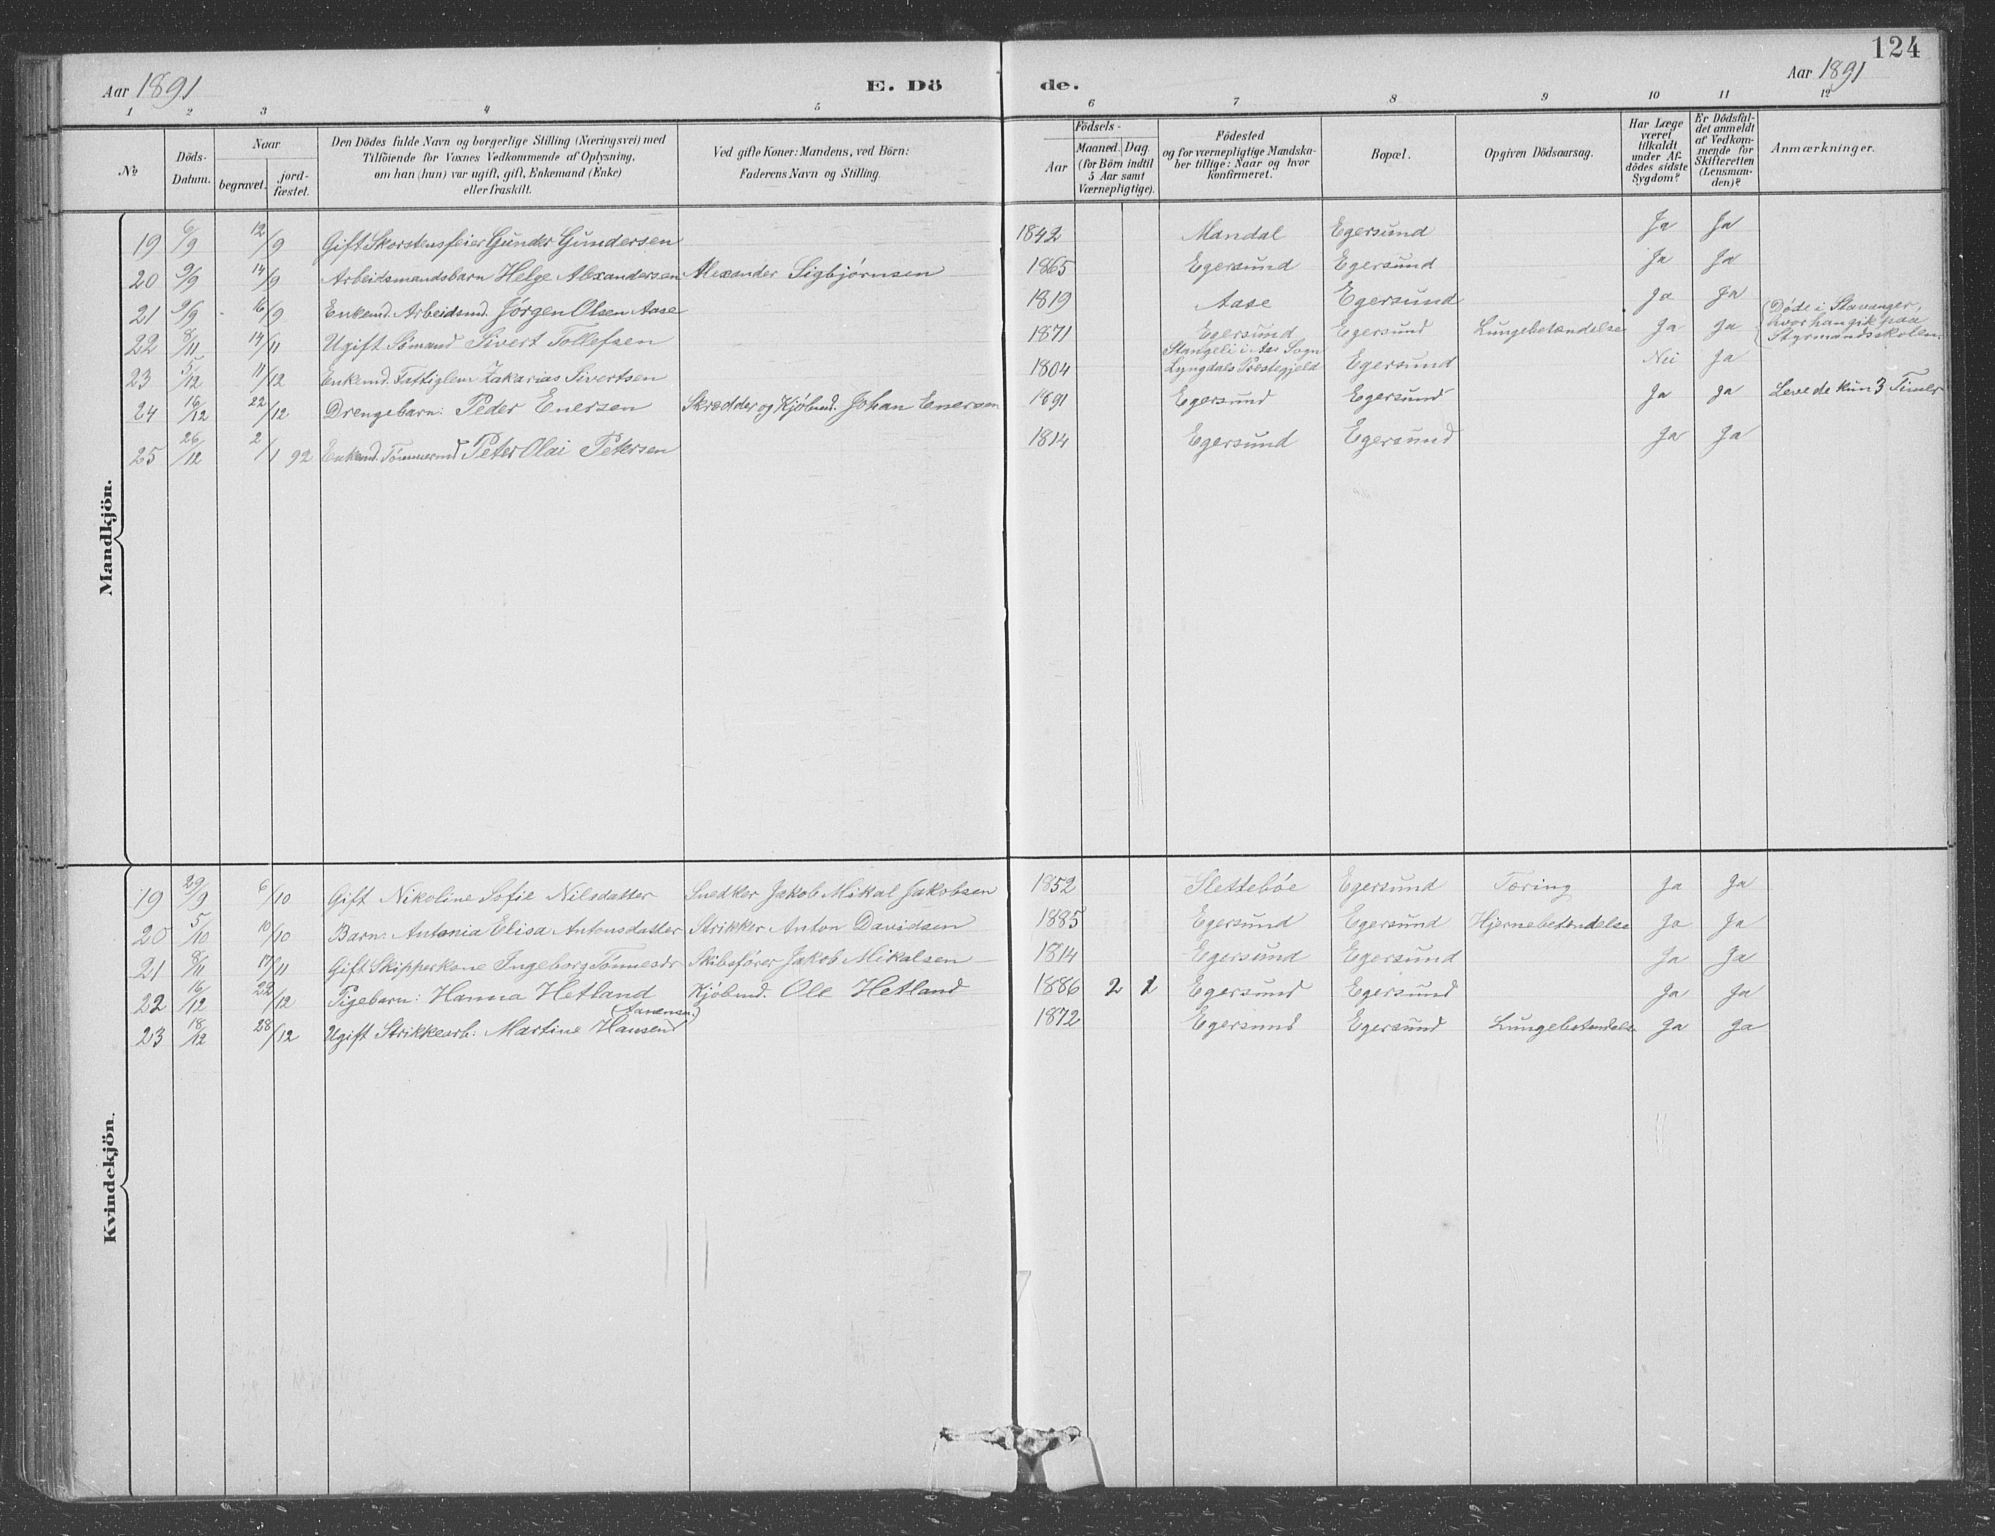 124
Aar 1891 E. Dö de. Aar 1891
1 2 3 4 5 6 7 8 9 10 11 12
№ Döds-Datum. Naar begravet. jord-fæstet. Den Dödes fulde Navn og borgerlige Stilling (Næringsvei) med Tilföiende for Voxnes Vedkommende af Oplysning, om han (hun) var ugift, gift, Enkemand (Enke) eller fraskilt. Ved gifte Koner: Mandens, ved Börn: Faderens Navn og Stilling. Födsels- Aar Maaned. Dag. (for Börn indtil 5 Aar samt Værnepligtige). Födested og for værnepligtige Mandskaber tillige: Naar og hvor konfirmeret. Bopæl. Opgiven Dödsaarsag. Har Læge været tilkaldt under Afdödes sidste Sygdom? Er Dödsfaldet anmeldt af Vedkommende for Skifteretten (Lensmanden)? Anmærkninger.
Mandkjön.
19 6/9 12/9 Gift Skorstensfeier Gunder Gundersen 1842 Mandal Egersund Ja Ja
20 9/9 14/9 Arbeidsmandsbarn Helge Alexandersen Alexander Sigbjørnsen 1865 Egersund Egersund Ja Ja
21 9/9 16/9 Enkemd. Arbeidsmd. Jørgen Olsen Aase 1819 Aase Egersund Ja Ja
22 8/11 14/11 Ugift Sømand Sivert Tollefsen 1871 Egersund Egersund Lungebetændelse Ja Ja (Døde i Stavanger, hvor han gik paa Styrmandsskolen.
23 5/12 11/12 Enkemd. Fattiglem Zakarias Sivertsen 1804 Stangeli i Aas Sogn Lyngdals Præstegjeld Egersund Nei Ja
24 16/12 22/12 Drengebarn: Peder Enersen Skrædder og Kjöbmd. Johan Enersen 1891 Egersund Egersund Ja Ja Levede kun 3 Timer
25 26/12 2/1 92 Enkemd. Tömmermd Peter Olai Petersen 1814 Egersund Egersund Ja Ja
Kvindekjön.
19 29/9 6/10 Gift Nikoline Sofie Nilsdatter Snedker Jakob Mikal Jakobsen 1852 Slettebøe Egersund Tæring Ja Ja
20 5/10 10/10 Barn: Antonia Elisa Antonsdatter Strikker Anton Davidsen 1885 Egersund Egersund Hjernebetændelse Ja Ja
21 8/11 17/11 Gift Skipperkone Ingeborg Tønnesdr Skibsfører Jakob Mikalsen 1814 Egersund Egersund Ja Ja
22 16/12 22/12 Pigebarn: Hanna Hetland Kjöbmd. Ole Hetland 1886 2 1 Egersund Egersund Ja Ja
23 18/12 28/12 Ugift Strikkearb: Martine Hansen 1872 Egersund Egersund Lungebetændelse Ja Ja